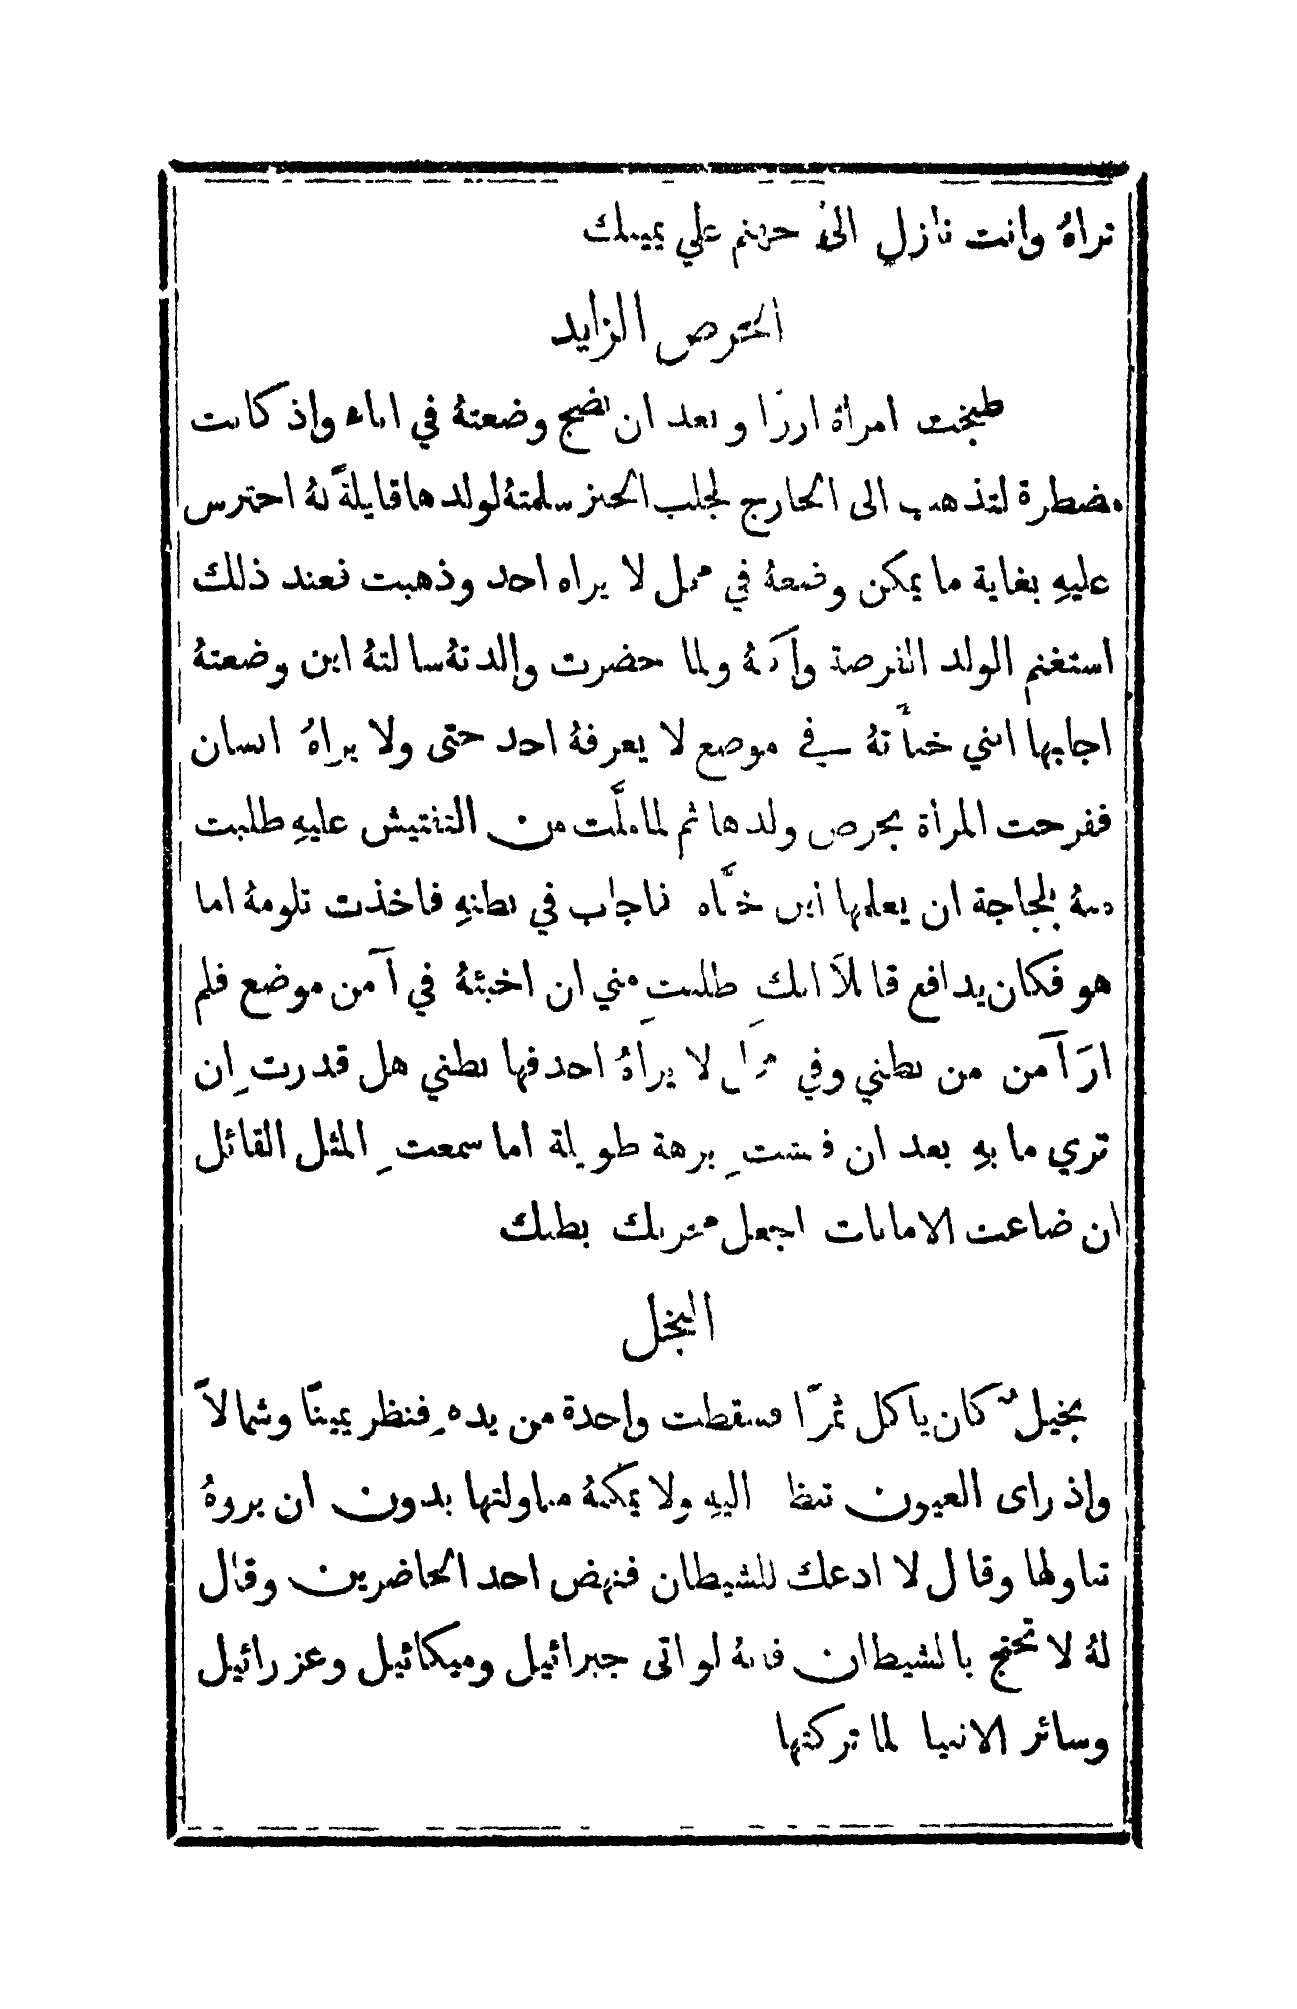 تراهُ وانت نازل الى جهنم علي يمينك
الحرص الزايد
طبخت امراة ارزًا وبعد ان نضج وضعتهُ في اناء واذ كانت
مضطرة لتذهب الى الخارج لجلب الخبز سلمتهُ لولدها قايلةً لهُ احترس
عليهِ بغاية ما يمكن وضعهُ في محل لا يراه احد وذهبت فعند ذلك
استغنم الولد الفرصة وأكلهُ ولما حضرت والدتهُ سالتهُ اين وضعتهُ
اجابها انني خبأتهُ في موضع لا يعرفهُ احد حتى ولا يراهُ انسان
ففرحت المرأة بحرص ولدها ثم لما ملَّت من التفتيش عليهِ طلبت
منهُ بلجاجة ان يعلمها اين خبَّاه فاجاب في بطنهِ فاخذت تلومهُ اما
هو فكان يدافع قائلاً انكِ طلبتِ مني ان اخبئهُ في آمن موضع فلم
ارَ آمن من بطني وفي محل لا يراهُ احد فها بطني هل قدرتِ ان
تري ما بهِ بعد ان فتشتِ برهة طويلة اما سمعتِ المثل القائل
ان ضاعت الامانات اجعل مخزنك بطنك
البخل
بخيلٌ كان ياكل ثمرًا فسقطت واحدة من يدهِ فنظر يمينًا وشمالاً
واذ راى العيون تنظر اليهِ ولا يمكنهُ مناولتها بدون ان يروهُ
تناولها وقال لا ادعك للشيطان فنهض احد الحاضرين وقال
لهُ لا تحتج بالشيطان فانهُ لو اتى جبرائيل وميكائيل وعزرائيل
وسائر الانبيا لما تركتها